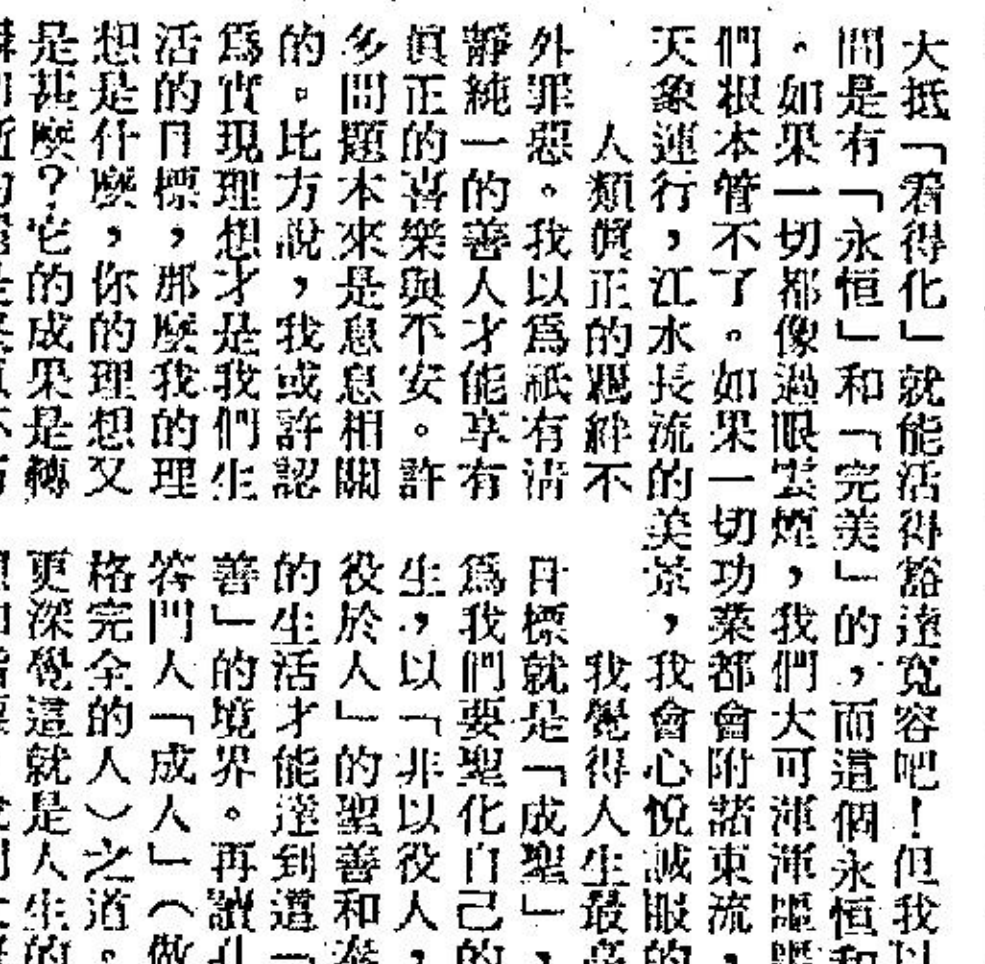 大抵「看得化」就能活得豁達寬容吧!但我以
間是有「永恒」和「完美」的,而這個永恒和
。如果一切都像過眼雲煙,我們大可渾渾噩噩
們根本管不了。如果一切功業都會附諸東流,
天象運行,江水長流的美景,我會心悅誠服的
人類眞正的羈絆不
外罪惡。我以爲祇有清
靜純一的善人才能享有
眞正的喜樂與不安。許
多問題本來是息息相關
的。比方說,我或許認
爲實現理想才是我們生
活的目標,那麼我的理
想是什麼,你的理想又
是甚麼?它的成果是轉
我覺得人生最高的
目標就是「成聖」,
爲我們要聖化自己的
生,以「非以役人,
役於人」的聖善和
的生活才能達到道「
善」的境界。再讀孔
答門人「成人」(做
格完全的人)之道。
更深覺這就是人生的